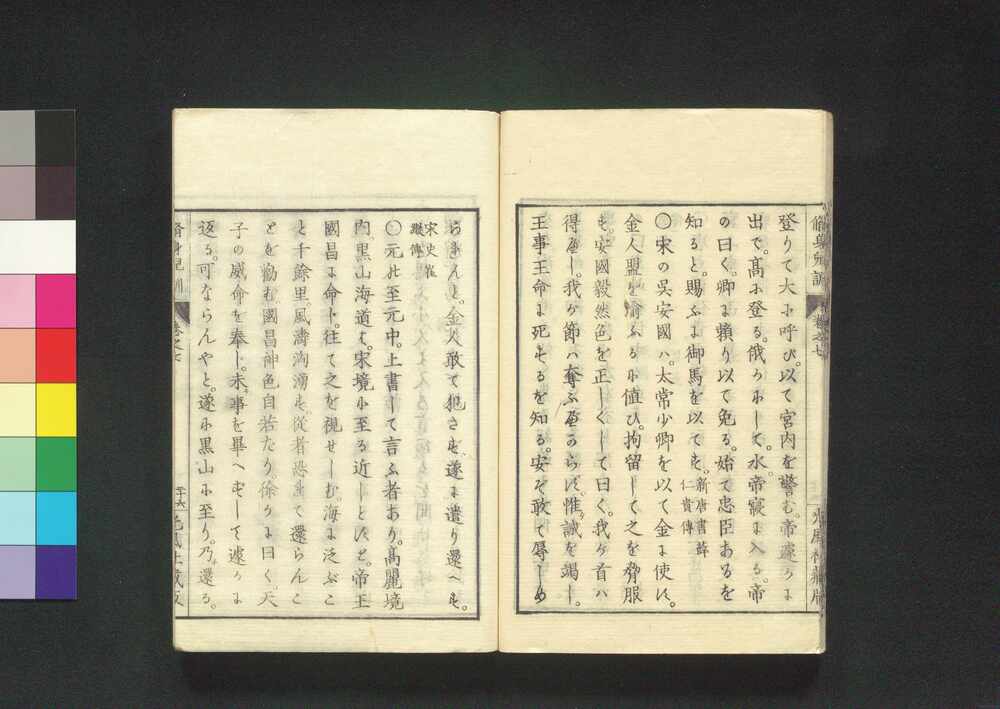 脩身兒訓 巻之七 光風社藏版
登りて大に呼び。以て宮内を警む。帝遽かに
出で。高に登る。俄かにして。水。帝寢に入る。帝
の曰く。卿に頼り以て免る。始て忠臣あるを
知ると。賜ふに御馬を以てす。新唐書薛
仁貴傳
〇宋の呉安國ハ。太常少卿を以て金に使す。
金人盟を渝ふるに値ひ。拘留して之を脅服
す。安國毅然色を正しくして曰く。我が首ハ
得べし。我が節ハ奪ふべからず。惟誠を竭し。
王事王命に死するを知る。安ぞ敢て辱しめ
られんと。金人敢て犯さず。遂に遣り還へす。
宋史崔
縱傳
〇元の至元中。上書して言ふ者あり。高麗境
内黒山海道は。宋境に至る近しとす。帝王
國昌に命じ。往て之を視せしむ。海に泛ぶこ
と千餘里。風濤洶湧す。從者恐れて還らんこ
とを勸む。國昌神色自若たり。徐かに曰く。天
子の威命を奉じ。未事を畢へずして遽かに
返る。可ならんやと。遂に黒山に至り。乃還る。
脩身兒訓 巻之七 光風社藏版